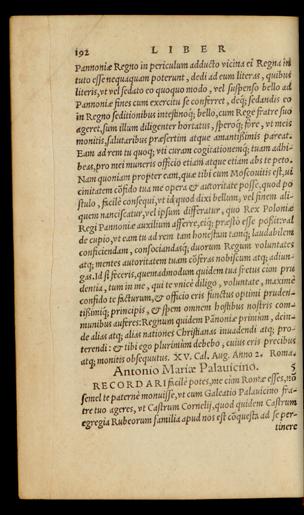 192 LIBER
Pannoniæ Regno in periculum adducto vicina ei Regna in
tuto esse nequaquam poterunt, dedi ad eum literas, quibus
literis, vt vel sedato eo quoquo modo, vel suspenso bello ad
Pannoniæ fines cum exercitu se conferret, deq; sedandis eo
in Regno seditionibus intestinoq; bello, cum Rege fratre suo
ageret, sum illum diligenter hortatus, speroq; fore, vt meis
monitis, salutaribus præsertim atque amantissimis pareat.
Eam ad rem tu quoq; vti curam cogitationemq; tuam adhi-
beas, pro mei muneris officio etiam atque etiam abs te peto.
Nam quoniam propter eam, quæ tibi cum Moscouitis est, vi
cinitatem cõfido tua me opera & autoritate posse, quod po
stulo, facilè consequi, vt id quod dixi bellum, vel finem ali-
quem nanciscatur, vel ipsum differatur, quo Rex Poloniæ
Regi Pannoniæ auxilium afferre, eiq; præsto esse possit: val
de cupio, vt eam tu ad rem tam honestam tamq; laudabilem
conficiendam, consociandasq; duorum Regum voluntates
atq; mentes autoritatem tuam cõferas nobiscum atq; adiun-
gas. Id si feceris, quemadmodum quidem tua fretus cum pru
dentia, tum in me, qui te vnicè diligo, voluntate, maximè
confido te facturum, & officio eris functus optimi pruden-
tissimiq; principis, & spem omnem hostibus nostris com-
munibus auferes: Regnum quidem Pãnoniæ primùm, dein-
de alias atq; alias nationes Christianas inuadendi atq; pro-
terendi: & tibi ego plurimùm debebo, cuius eris precibus
atq; monitis obsequutus. XV. Cal. Aug. Anno 2. Roma.
Antonio Mariæ Palauicino. 5
RECORDARI facilè potes, me cùm Romæ esses, nõ
semel te paternè monuisse, vt cum Galeatio Palauicino fra-
tre tuo ageres, vt Castrum Cornelij, quod quidem Castrum
egregia Rubeorum familia apud nos est cõquesta ad se per-
tinere